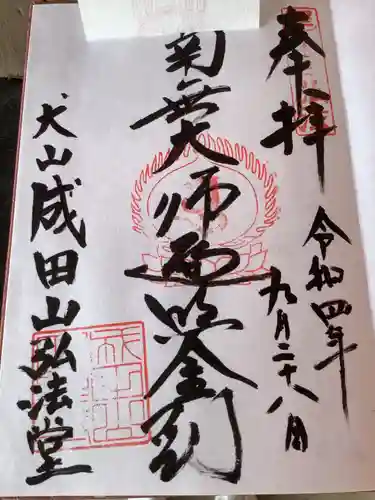 奉拝
令和四年
九月二十八日
南無大師遍照金剛
犬山成田山弘法堂